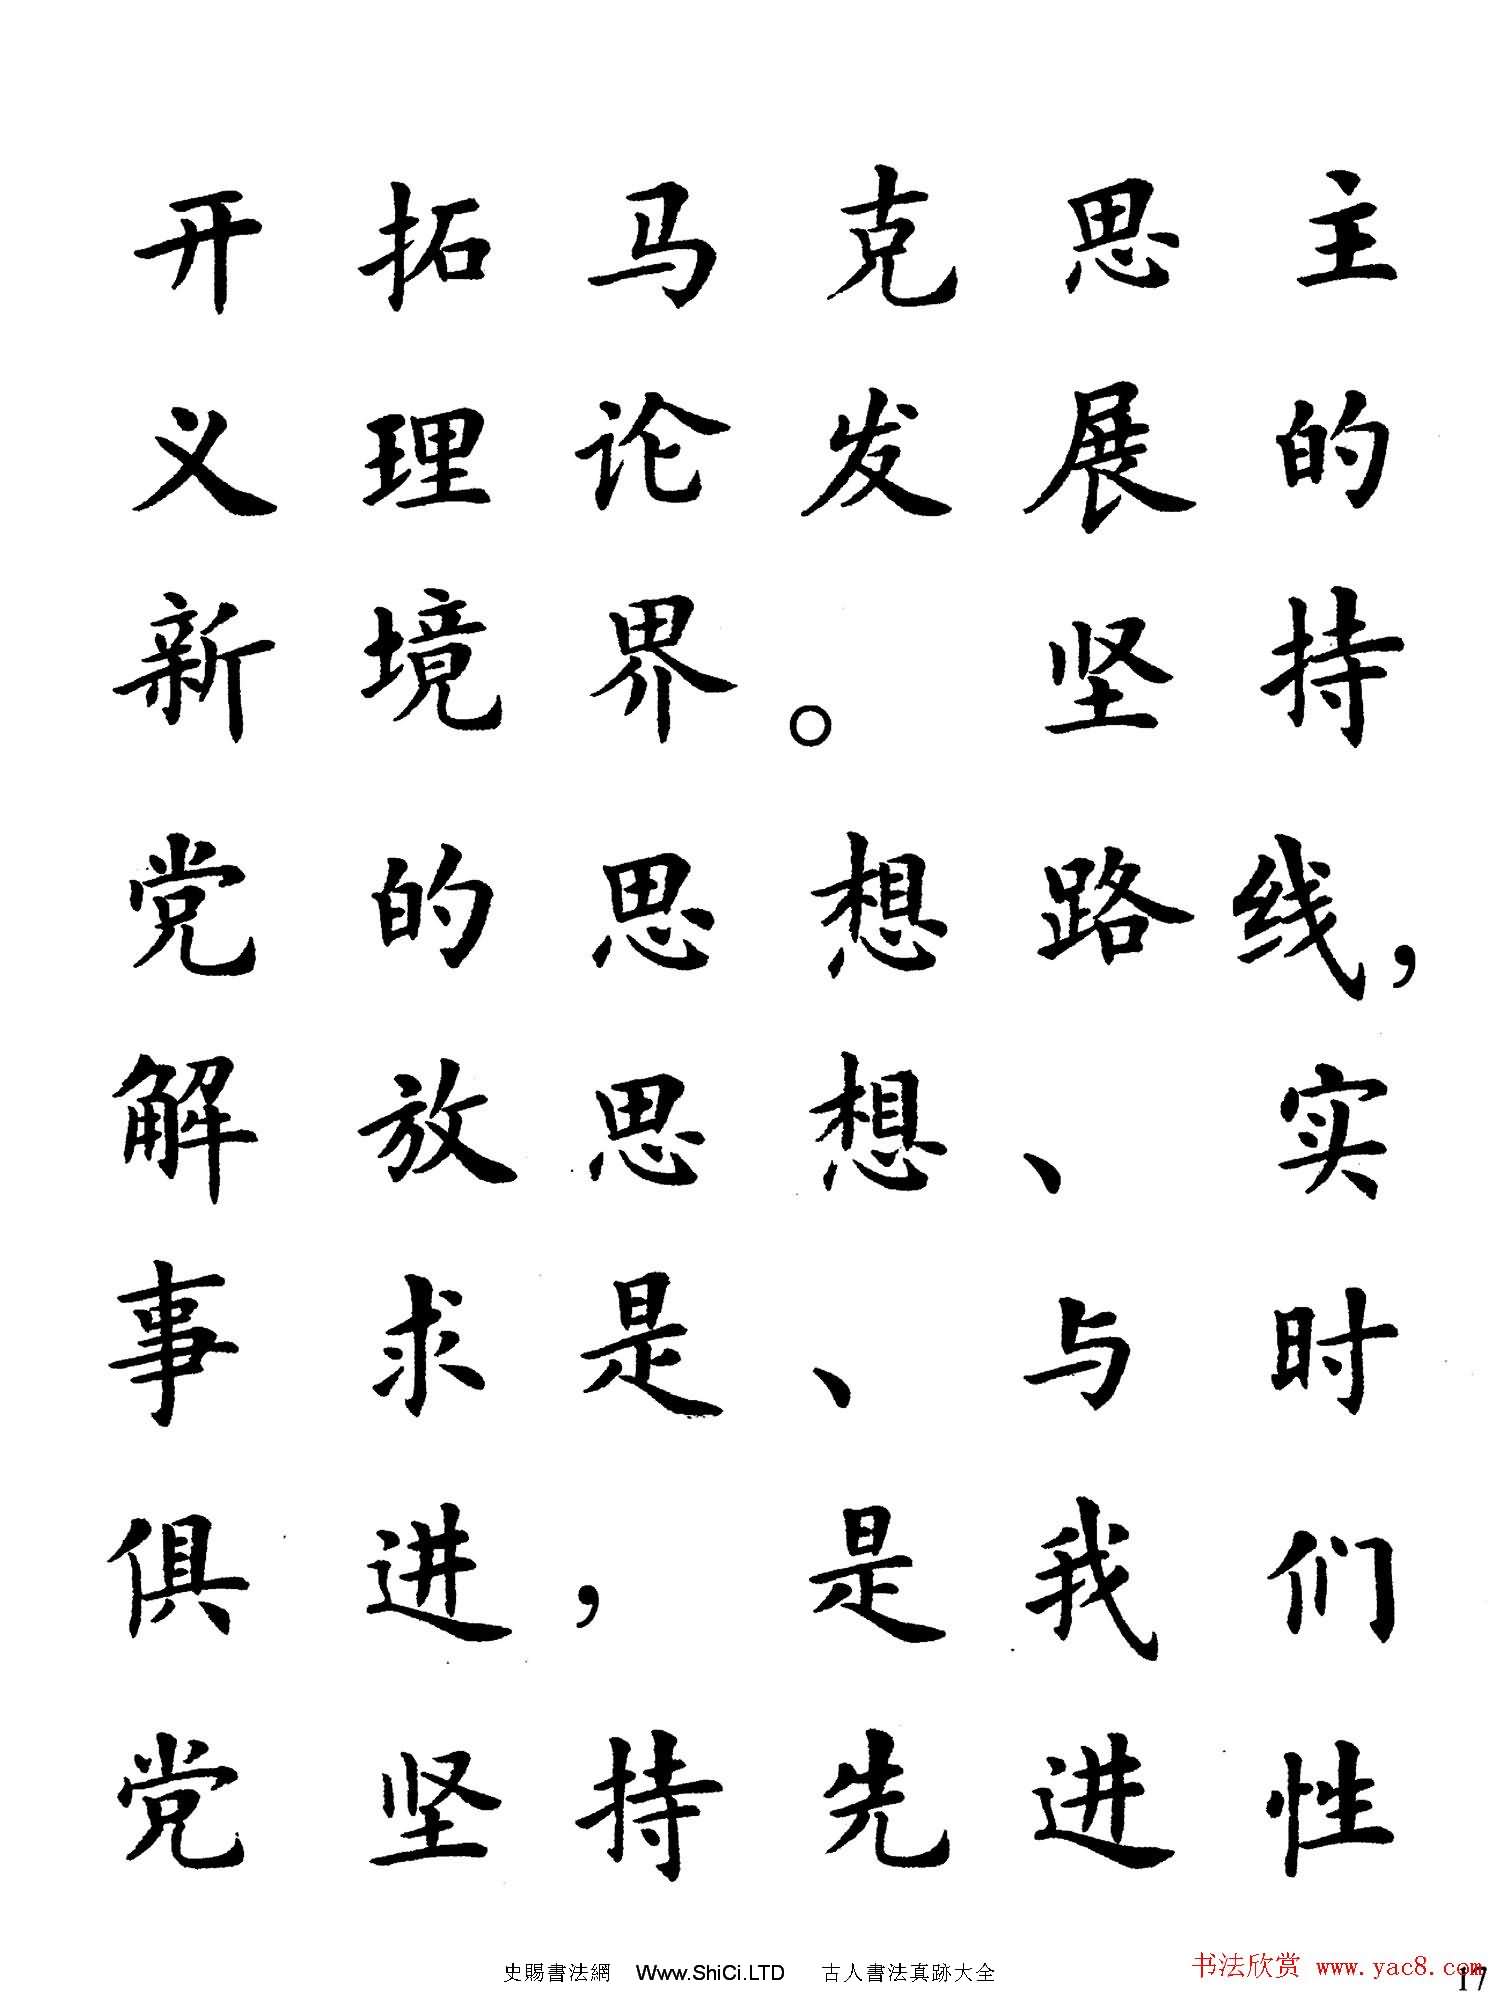 开拓马克思主
义理论发展的
新境界。坚持
党的思想路线，
解放思想、实
事求是、与时
俱进，是我们
党坚持先进性
史賜書法網 Www.ShiCi.LTD 古人書法真跡大全
书法欣赏 www.yac8.com
17